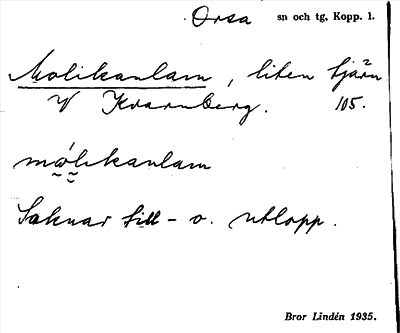 Orsa sn och tg. Kopp. l.
Molikanlam, liten tjärn
V Kvarnberg. 105.
mώ̣likanlam
Saknar till- o. utlopp.
Bror Lindén 1935.